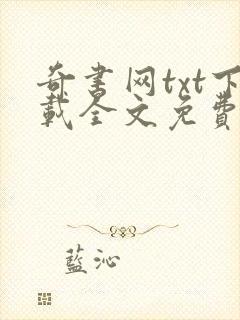 奇书网txt下
載全文免費
藍沁